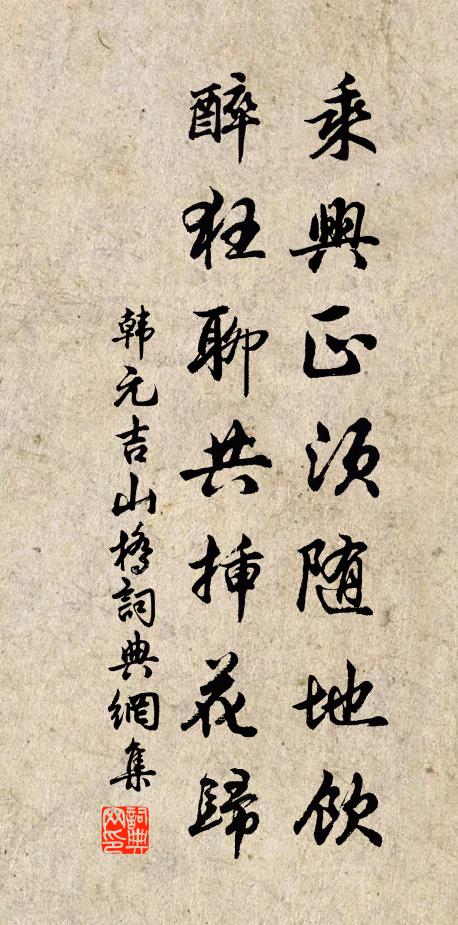 乘興正須随地飲
醉狂聊共插花歸
韩元吉山橋詞典網集
詞典網印